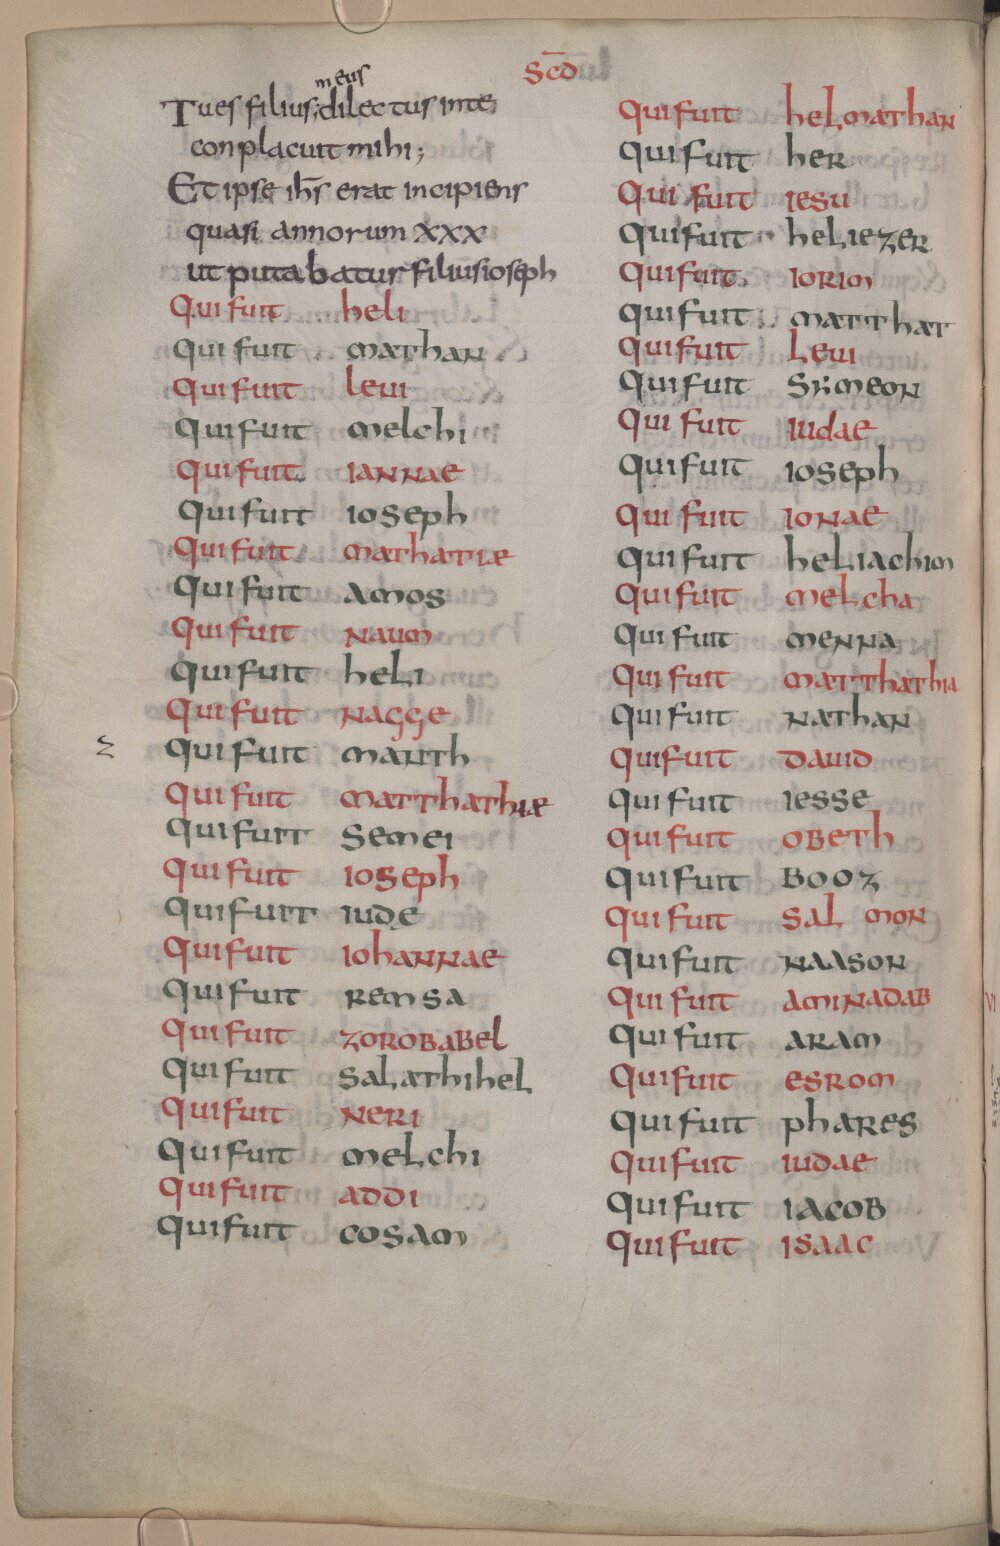 Sc̄d
meus
Tu es filius; dilectus in te
conplacuit mihi;
Et ipse ih̄s erat incipiens
quasi annorum XXX
ut putabatur filius ioseph
Qui fuit heli
qui fuit mathan
qui fuit leui
qui fuit melchi
qui fuit iannae
qui fuit ioseph
qui fuit mathatiæ
qui fuit amos
qui fuit naum
qui fuit heli
qui fuit nagge
z
qui fuit maath
qui fuit matthathiæ
qui fuit semei
qui fuit ioseph
qui fuit iudę
qui fuit iohannae
qui fuit remsa
qui fuit zorobabel
qui fuit salathihel
qui fuit neri
qui fuit melchi
qui fuit addi
qui fuit cosam
qui fuit helmathan
qui fuit her
qui fuit iesu
qui fuit heliezer
qui fuit iorim
qui fuit matthat
qui fuit leui
qui fuit simeon
qui fuit iudae
qui fuit ioseph
qui fuit ionae
qui fuit heliachim
qui fuit melcha
qui fuit menna
qui fuit matthathia
qui fuit nathan
qui fuit dauid
qui fuit iesse
qui fuit obeth
qui fuit booz
qui fuit sal mon
qui fuit naason
qui fuit aminadab
qui fuit aram
qui fuit esrom
qui fuit phares
qui fuit iudae
qui fuit iacob
qui fuit isaac